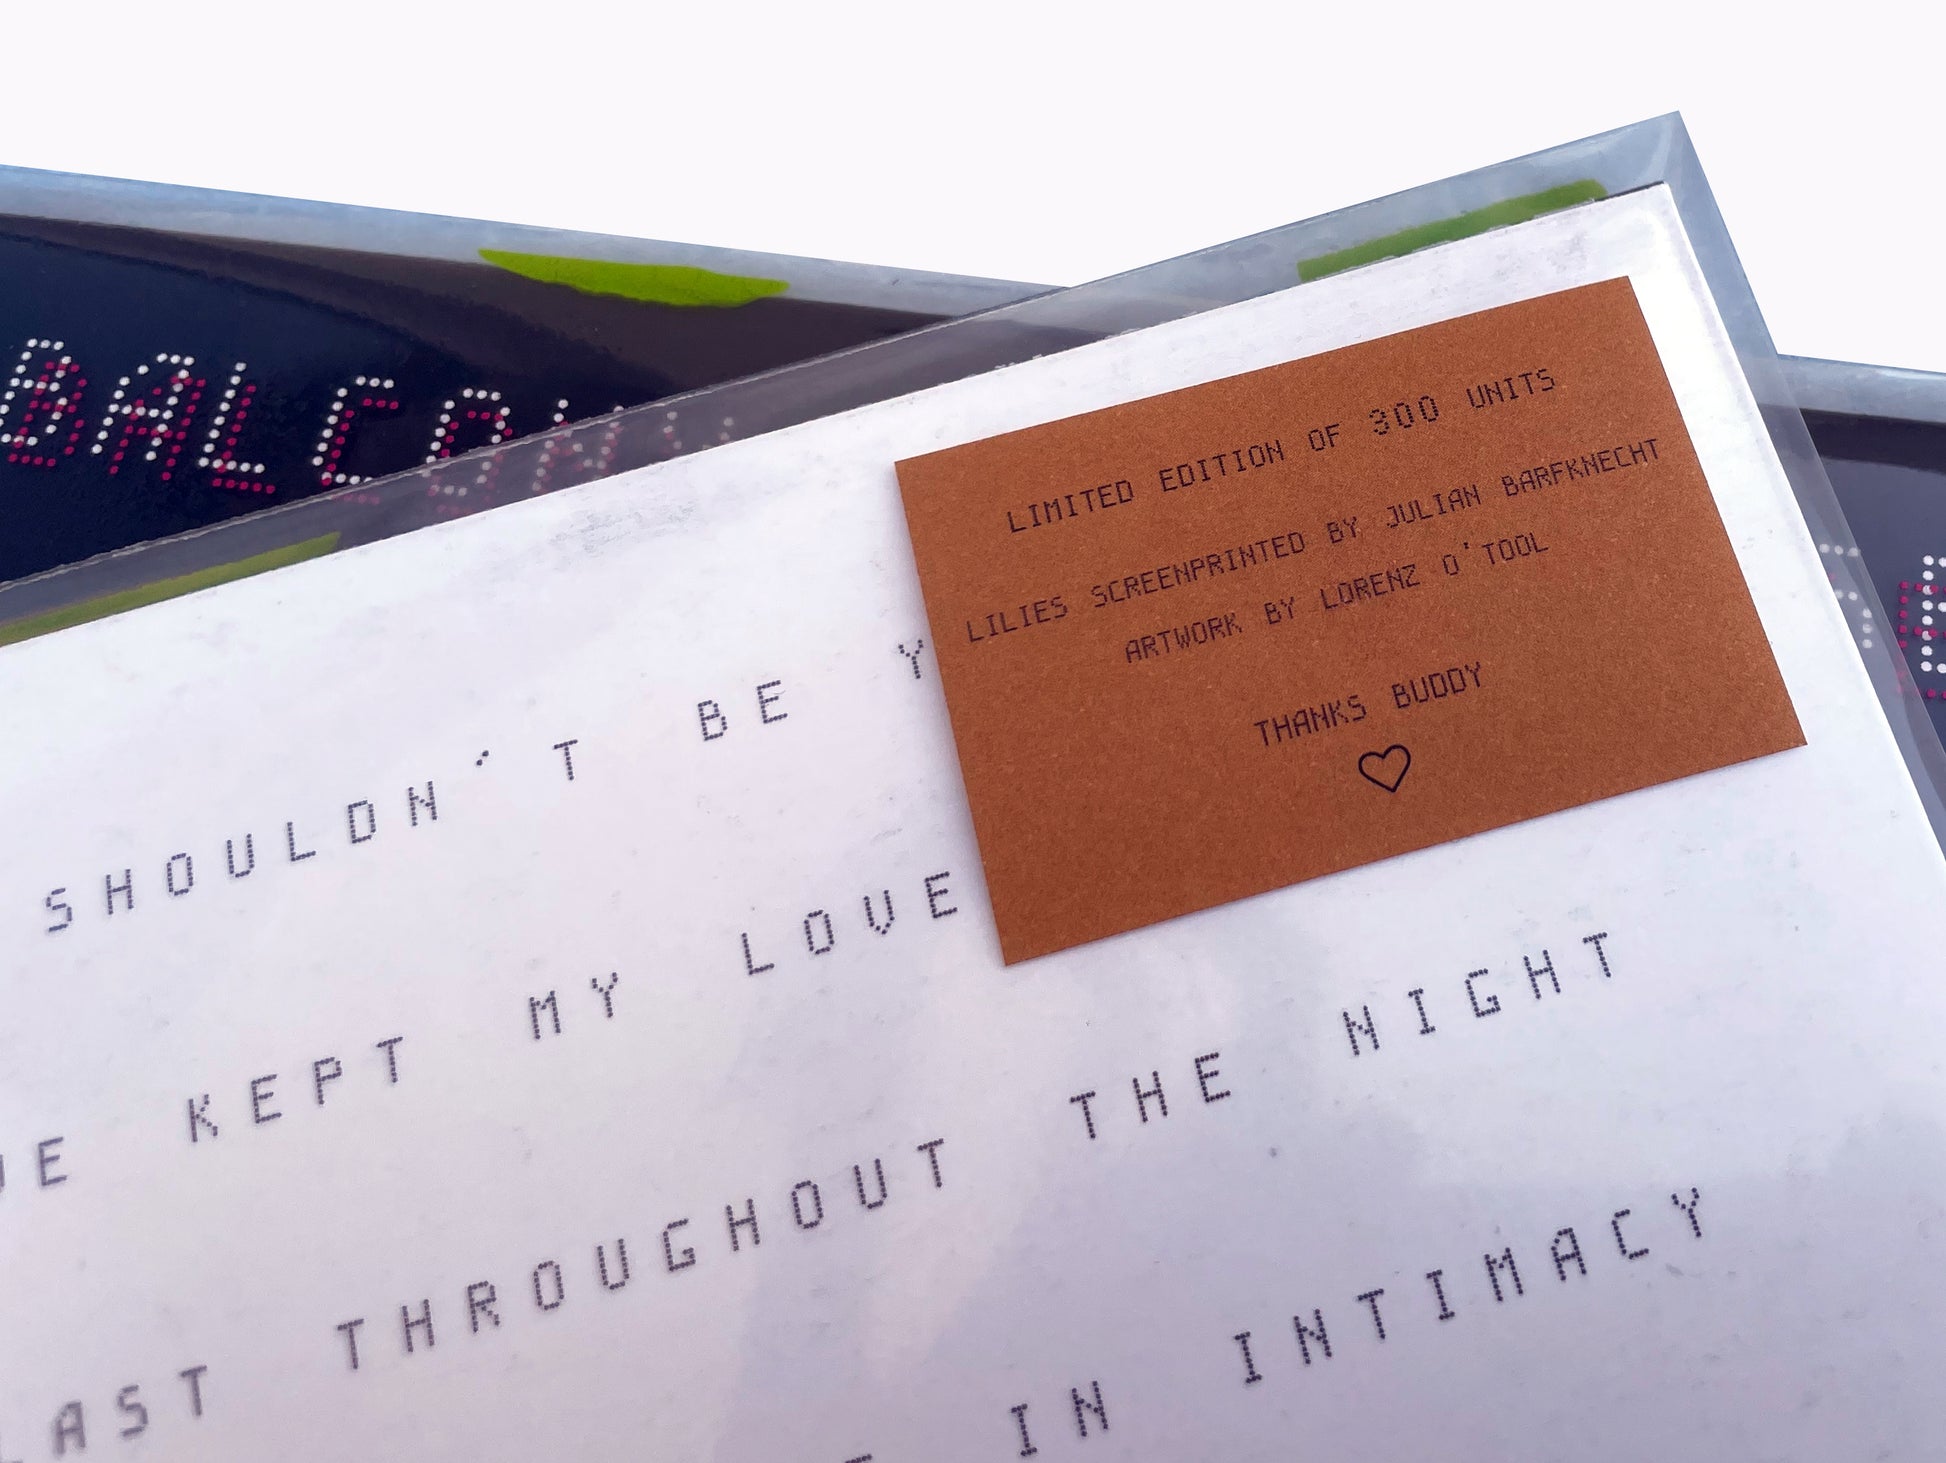 BALCONY
LIMITED EDITION OF 300 UNITS
LILIES SCREENPRINTED BY JULIAN BARFKNECHT
ARTWORK BY LORENZ O'TOOL
THANKS BUDDY
SHOULDN'T BE
KEPT MY LOVE
THROUGHOUT THE NIGHT
IN INTIMACY